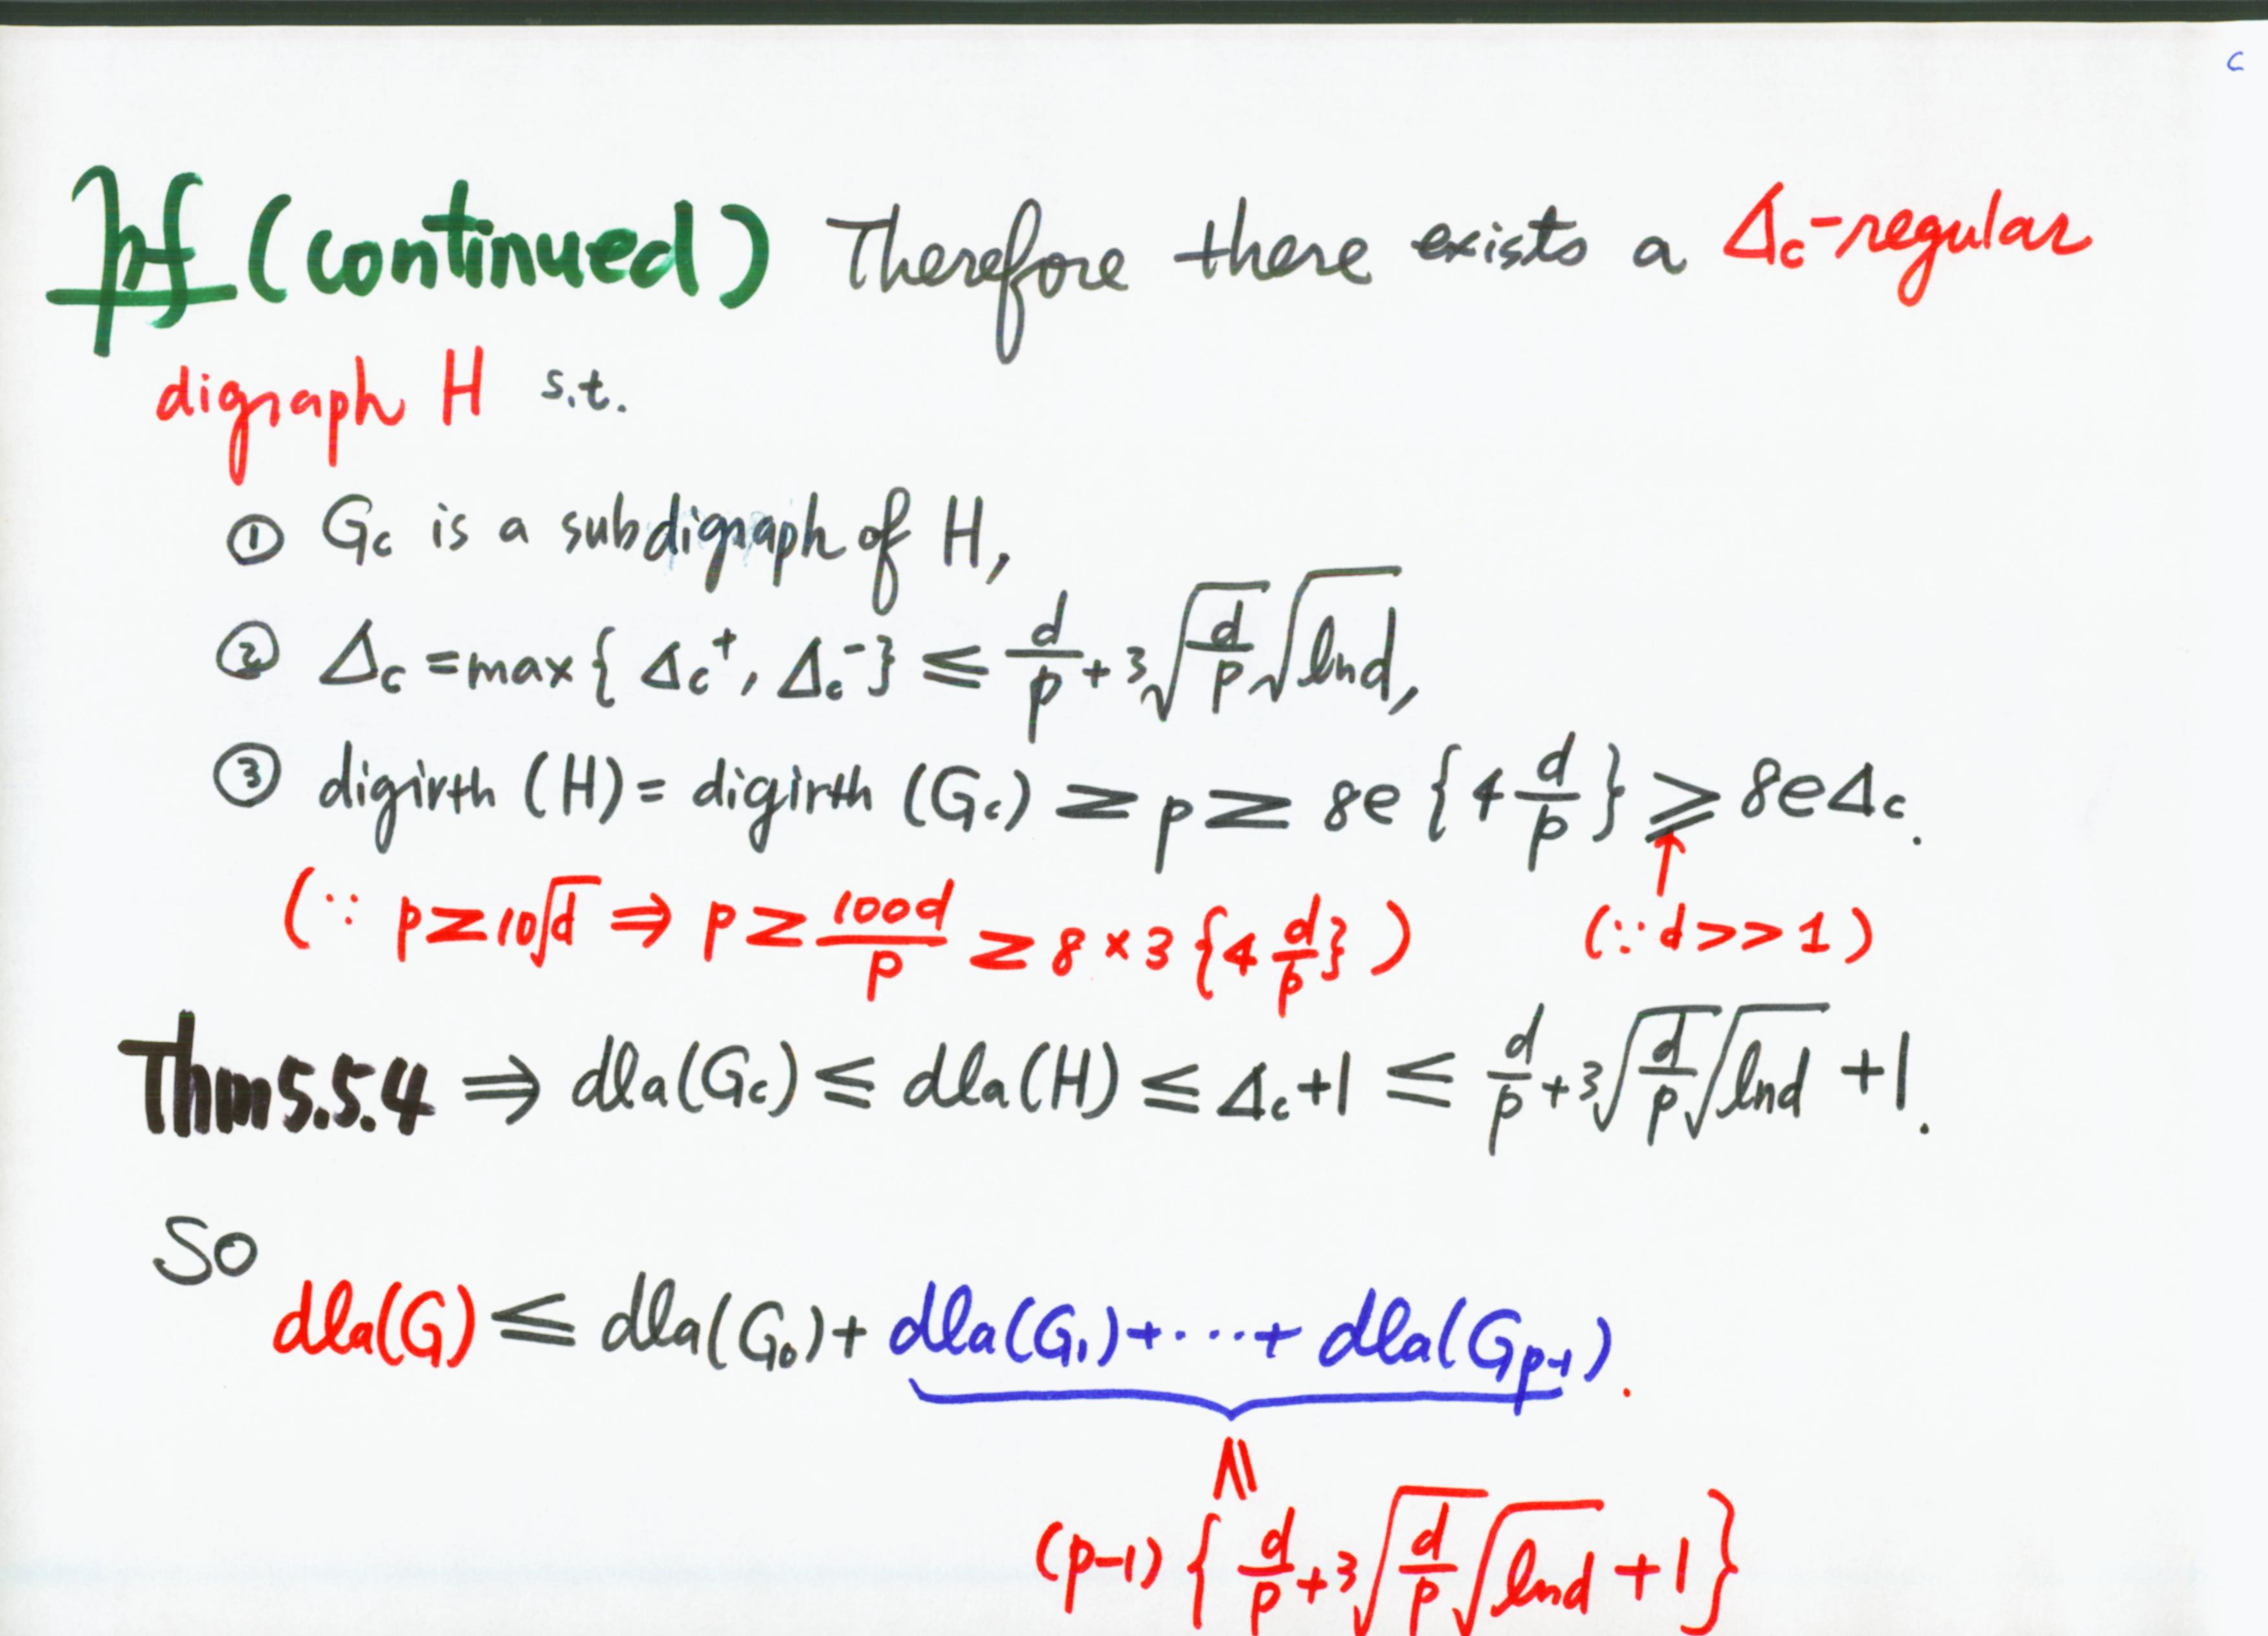 c
pf (continued) Therefore there exists a Δc-regular
digraph H s.t.
① Gc is a subdigraph of H,
② Δc = max{ Δc⁺, Δc⁻ } ≤ d/p + 3√(d/p) √(ln d),
③ digirth (H) = digirth (Gc) ≥ p ≥ 8e {4 d/p} ≥ 8eΔc.
↑
(∵ p ≥ 10√d ⇒ p ≥ 100d/p ≥ 8 × 3 {4 d/p}) (∵ d >> 1)
Thm 5.5.4 ⇒ dla(Gc) ≤ dla(H) ≤ Δc+1 ≤ d/p + 3√(d/p) √(ln d) + 1.
So
dla(G) ≤ dla(G₀) + dla(G₁) + ⋯ + dla(Gp-1).
≤
(p-1) { d/p + 3√(d/p) √(ln d) + 1 }